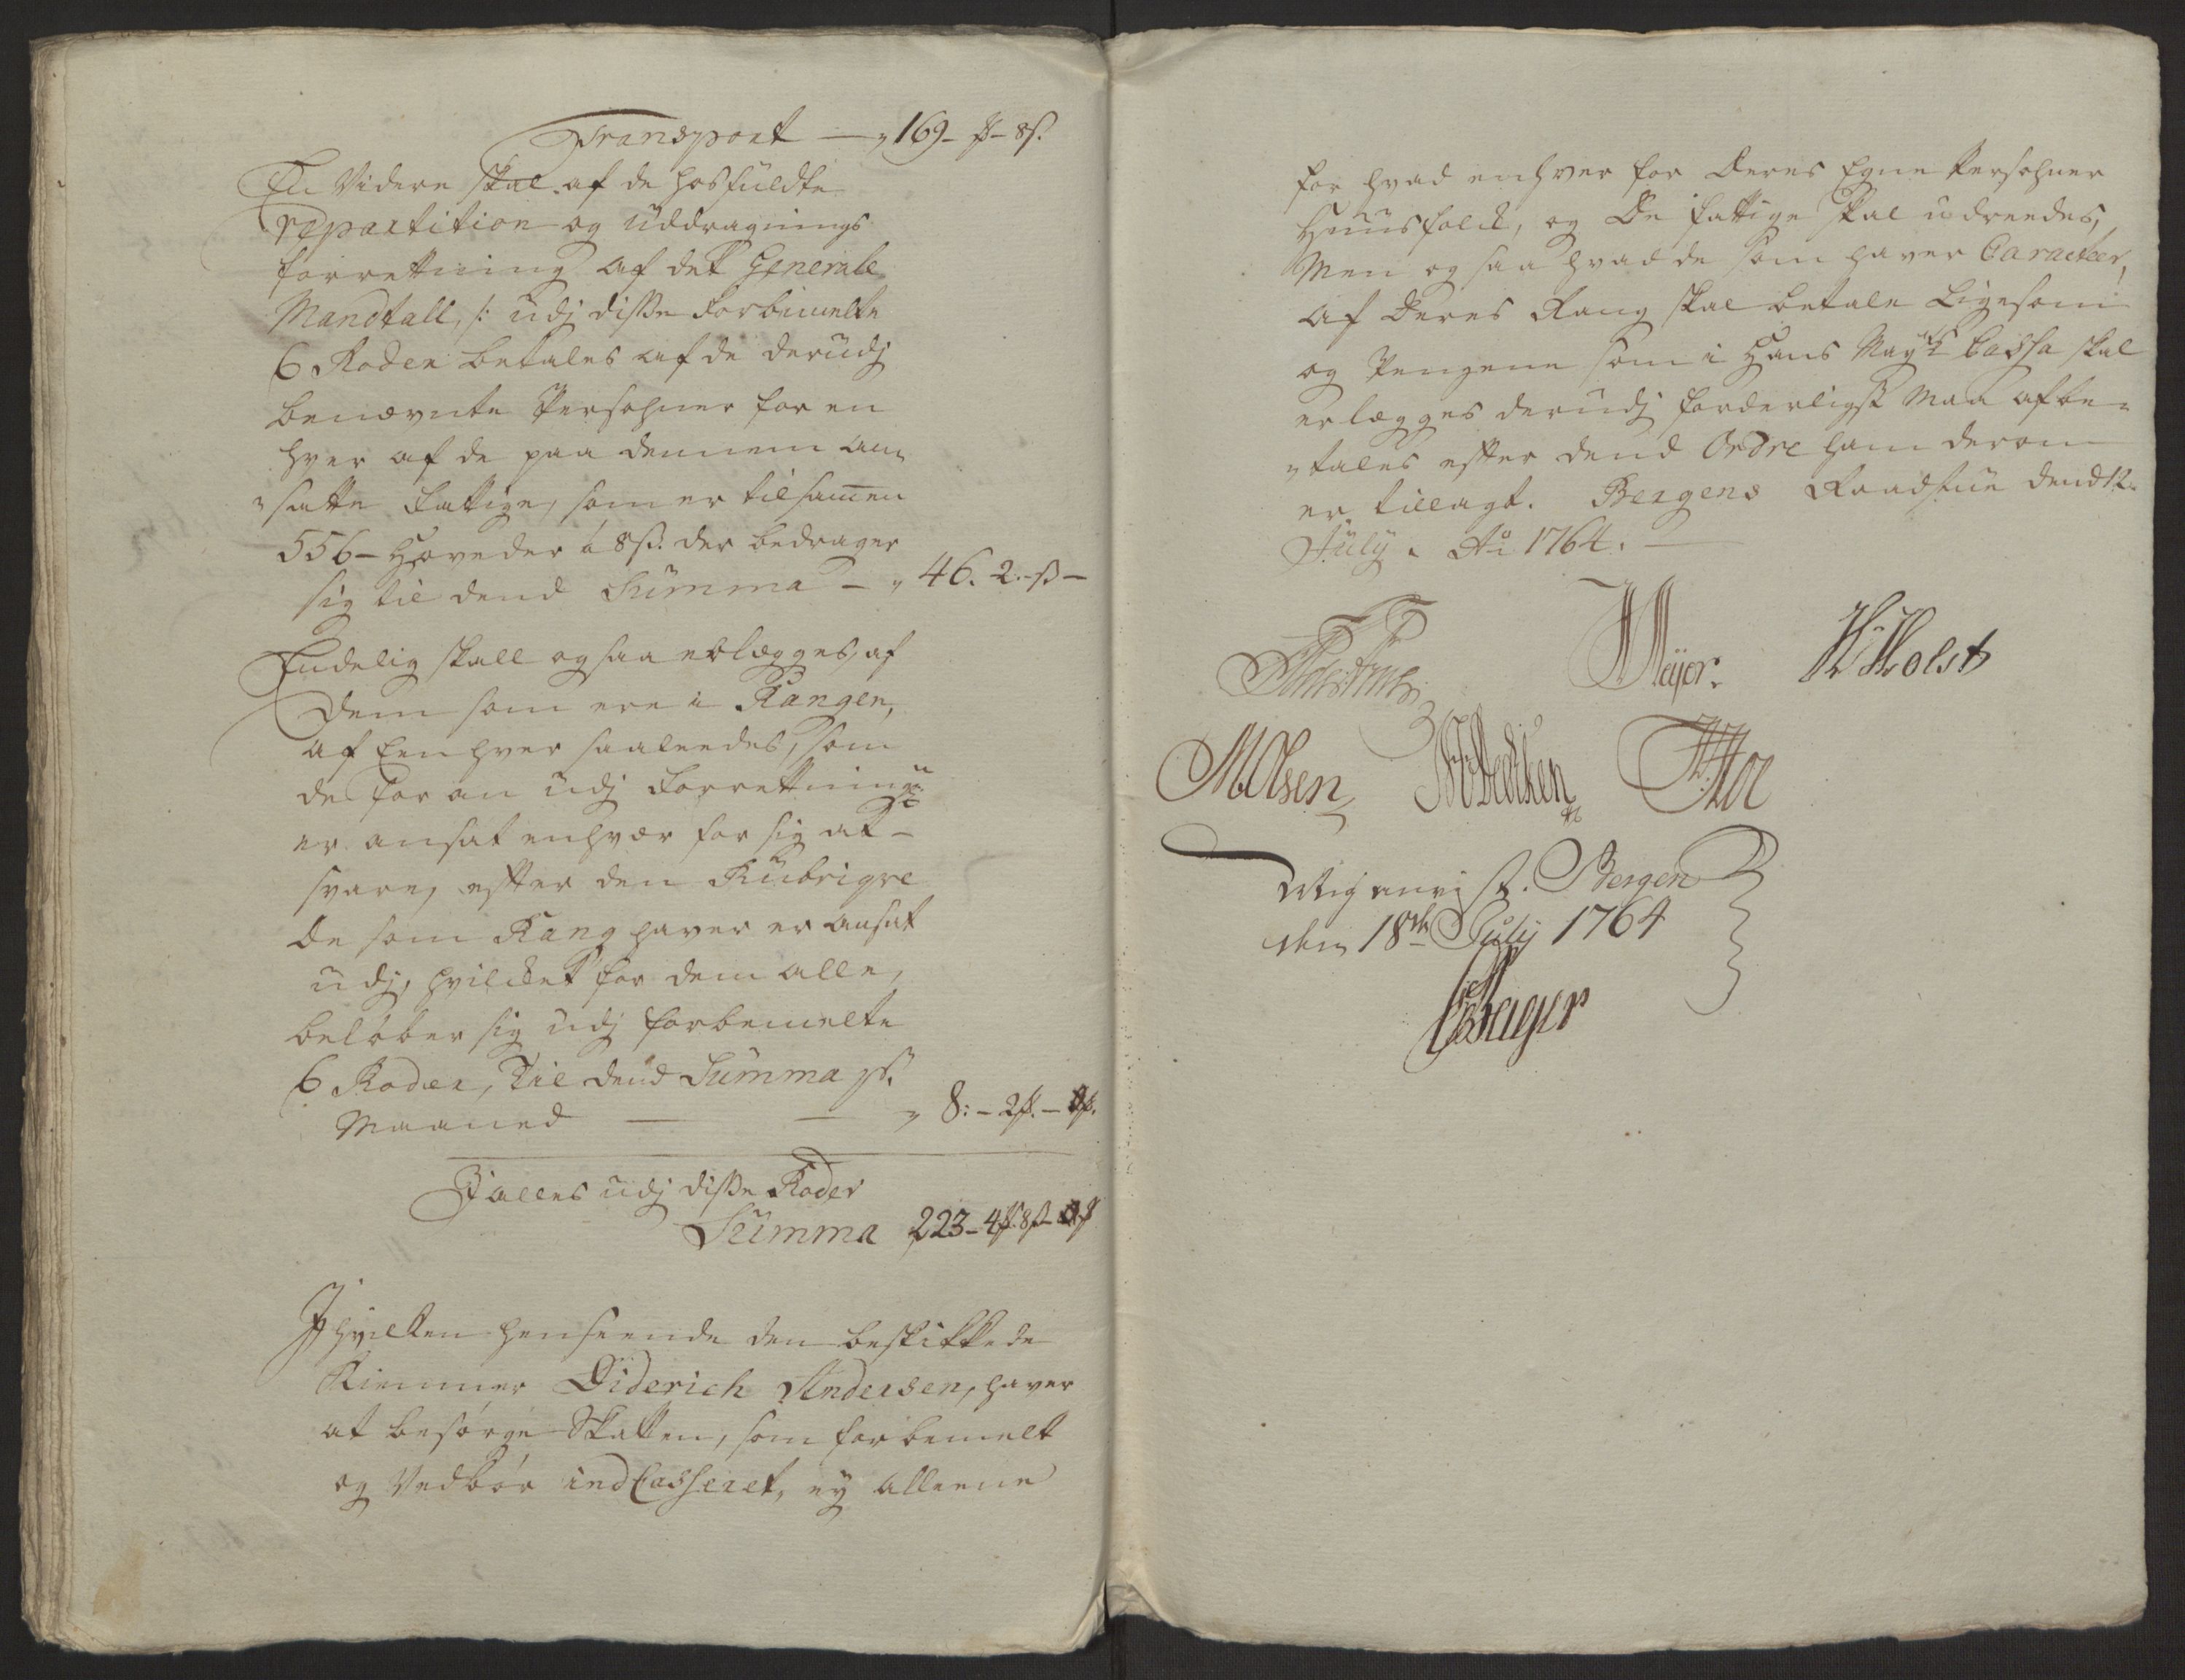 Transport — „ 169 - ß - 8 ß.
En Videre skal af de hosfuldte
repartition og uddragnings
forrettning af det Generale
Mandtall, /: udj disse forbemelte
6 Roder betales af de derudj
benævnte Persohner for en
hver af de paa dennem an„
„satte Fattige, som er tilsamen
556 - Hoveder á 8 ß. der bedrager
sig til dend Summa - „ 46. 2. - ß -
Endelig skall ogsaa erlægges, af
Dem som ere i Rangen,
af Een hver saaleedes, som
de for an udj forrettning
er ansat enhver for sig at -
svare, efter den Rubrigve
De som Rang haver er ansat
udj, hvilket for dem alle,
beløber sig udj forbemelte
6 Roder, Til dend Summa pr.
Maaned — — „ 8: - 2 ß. -
I alles udj disse Roder
Summa 223 - 4 ß. 8 ß -
I hvilken henseende den beskikkede
Kiemner Diderich Andersen, haver
at besørge Skatten, som forbemelt
og Vedbør indCasseret, ey alleene
for hvad enhver for Deres Egne Persohner
Huusfolk, og De fattige skal udreedes,
Men og saa hvad de som haver Caracteer,
af Deres Rang skal betale Ligesom
og Pengene som i Hans Mayts Cassa skal
erlægges derudj forderligst Maa afbe„
„tales efter dend Ordre ham derom
er tillagt. Bergens Raadstue dend 12.
July. Ao 1764. —
Meyer. Holst
MOlsen
Mig anvist. Bergen
den 18de July 1764